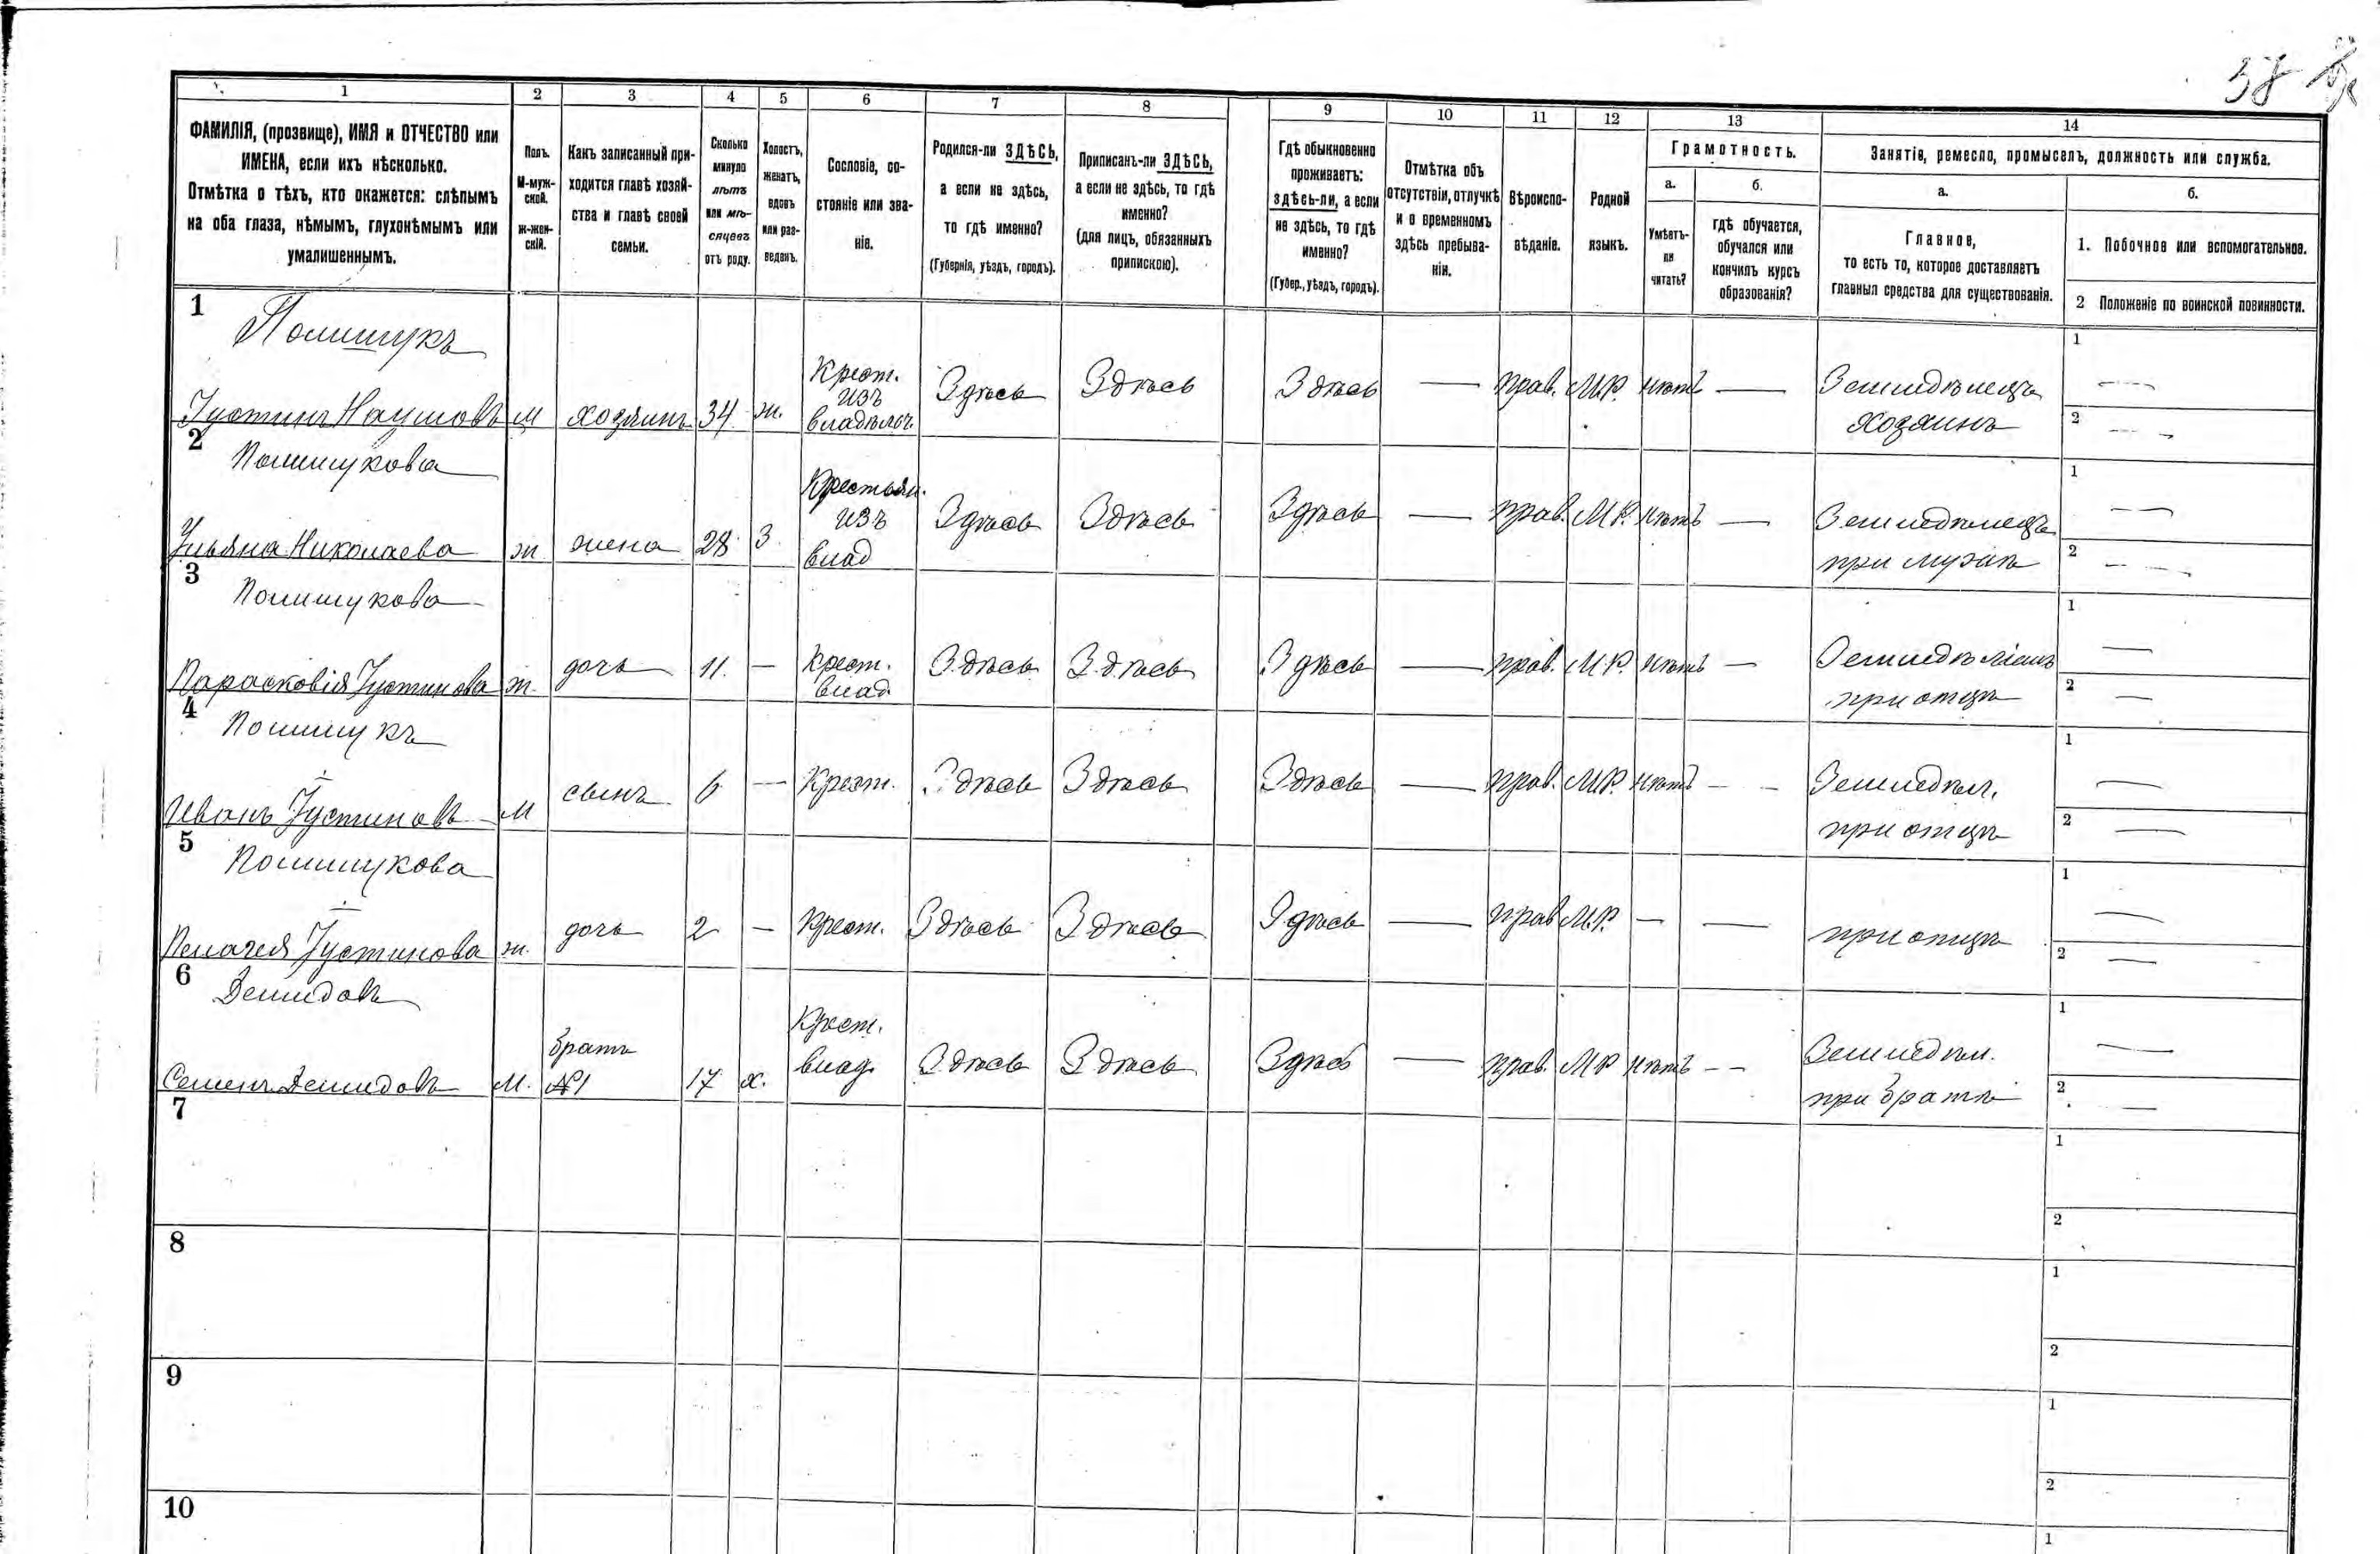 58
1 2 3 4 5 6 7 8 9 10 11 12 13 14
ФАМИЛІЯ, (прозвище), ИМЯ и ОТЧЕСТВО или
ИМЕНА, если ихъ нѣсколько.
Отмѣтка о тѣхъ, кто окажется: слѣпымъ
на оба глаза, нѣмымъ, глухонѣмымъ или
умалишеннымъ.
Полъ.
М-муж-
ской.
ж-жен-
скій.
Какъ записанный при-
ходится главѣ хозяй-
ства и главѣ своей
семьи.
Сколько
минуло
лѣтъ
или мѣ-
сяцевъ
отъ роду.
Холостъ,
женатъ,
вдовъ
или раз-
веденъ.
Сословіе, со-
стояніе или зва-
ніе.
Родился-ли ЗДѢСЬ,
а если не здѣсь,
то гдѣ именно?
(Губернія, уѣздъ, городъ).
Приписанъ-ли ЗДѢСЬ,
а если не здѣсь, то гдѣ
именно?
(для лицъ, обязанныхъ
припискою).
Гдѣ обыкновенно
проживаетъ:
здѣсь-ли, а если
не здѣсь, то гдѣ
именно?
(Губер., уѣздъ, городъ).
Отмѣтка объ
отсутствіи, отлучкѣ
и о временномъ
здѣсь пребыва-
ніи.
Вѣроиспо-
вѣданіе.
Родной
языкъ.
Грамотность.
а.
Умѣетъ-
ли
читать?
б.
гдѣ обучается,
обучался или
кончилъ курсъ
образованія?
Занятіе, ремесло, промыселъ, должность или служба.
а.
Главное,
то есть то, которое доставляетъ
главныя средства для существованія.
б.
1. Побочное или вспомогательное.
2 Положеніе по воинской повинности.
1
Полищукъ
Крест.
изъ
Іустинъ Наумовъ м хозяинъ 34 ж. владѣльч. Здѣсь Здѣсь Здѣсь — прав. М.Р. нѣтъ — Земледѣлецъ 1 —
хозяинъ 2 —
2
Полищукова
Крестьян.
изъ
Ульяна Николаева ж жена 28 З. влад Здѣсь Здѣсь Здѣсь — прав. М.Р. нѣтъ — Земледѣлецъ 1 —
при мужѣ 2 —
3
Полищукова
Крест.
Парасковія Іустинова ж. дочь 11. — влад. Здѣсь Здѣсь Здѣсь — прав. М.Р. нѣтъ — 1 —
при отцѣ 2 —
4
Полищукъ
Иванъ Іустиновъ м сынъ 6 — Крест. Здѣсь Здѣсь Здѣсь — прав. М.Р. нѣтъ — Земледѣл. 1 —
при отцѣ 2 —
5
Полищукова
Пелагея Іустинова ж. дочь 2 — Крест. Здѣсь Здѣсь Здѣсь — прав М.Р. — — при отцѣ 1 —
2 —
6
Демидовъ
братъ Крест.
Семенъ Демидовъ м. №1 17 х. влад. Здѣсь Здѣсь Здѣсь — прав. М.Р нѣтъ — Земледѣл. 1 —
при братѣ 2 —
7
1
2
8
1
2
9
1
2
10
1